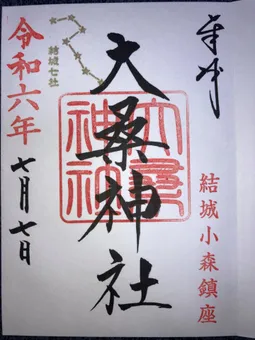 奉拝
結城小森鎮座
大桑神社
結城七社
令和六年
七月七日